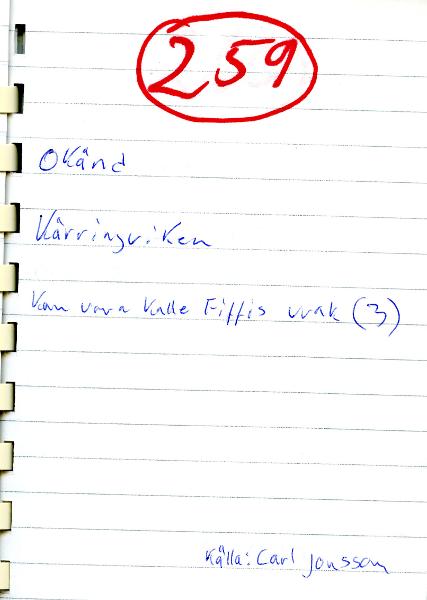 259
Okänd
Kärringviken
Kan vara Kalle Fiffis vrak (3)
Källa: Carl Jonsson